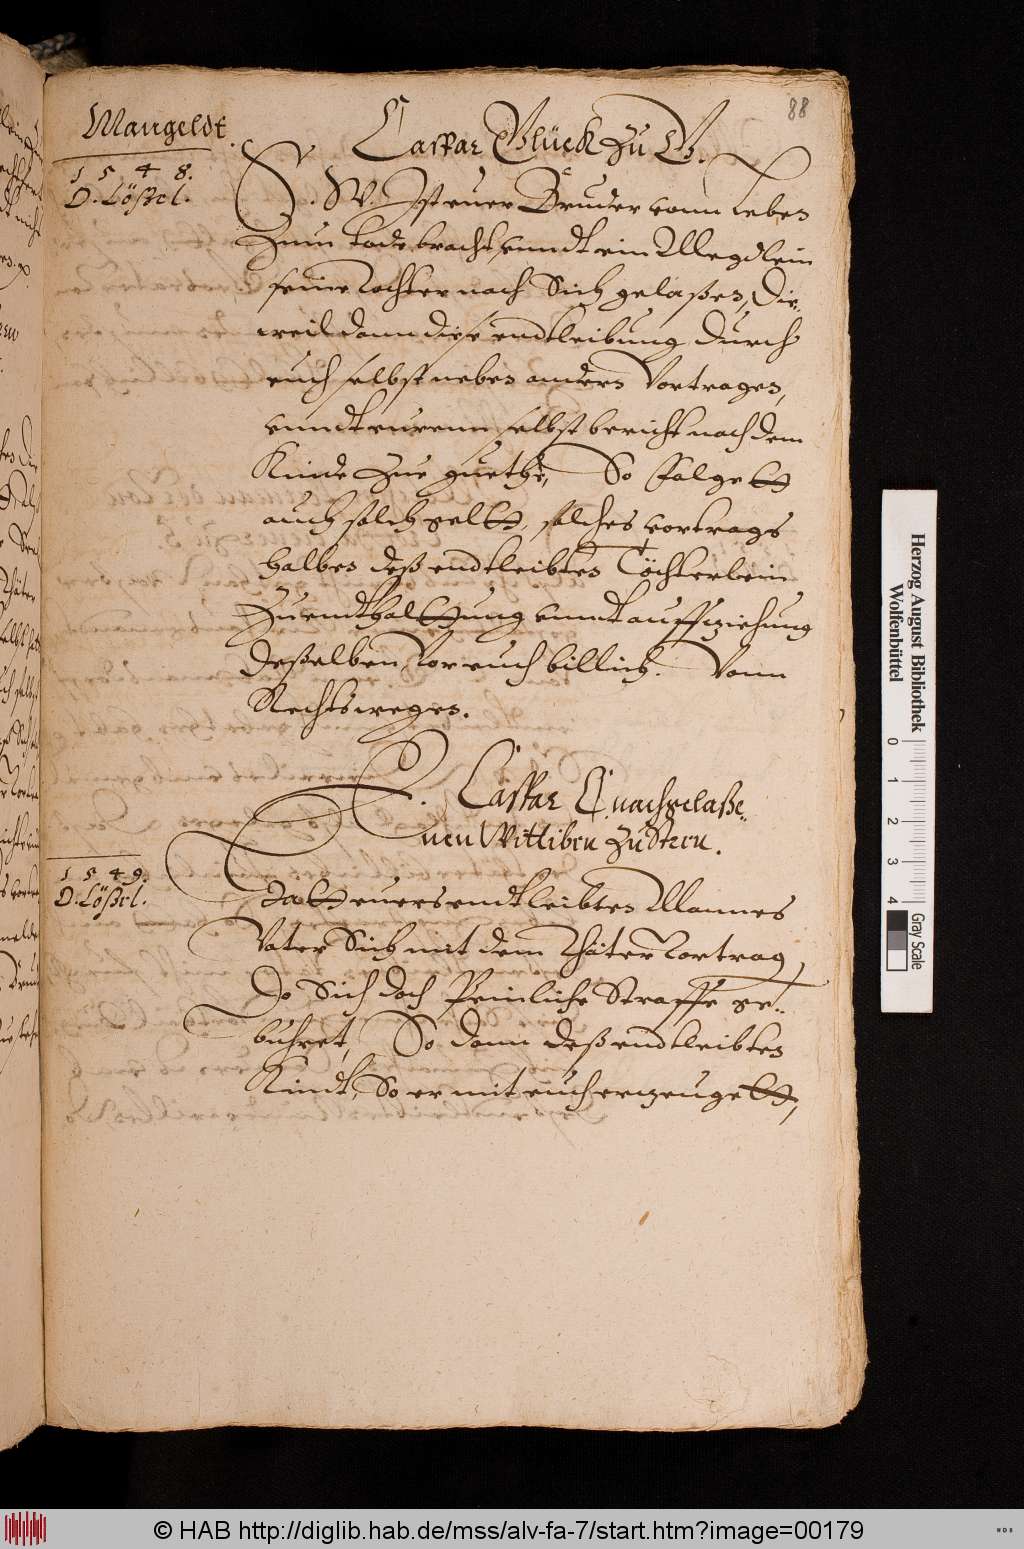 88
Mangeldt.
Caspar Glück zu G.
1 5 4 8.
D. Lößel.
S. W. Ist euer Bruder vonn leben
Zum tode bracht, unndt ein Megdlein
seine Tochter nach Sich gelaßen, Die-
weil dann diese endtleibung durch
euch selbst neben andern Vortragen,
unndt eurenn selbst bericht nach dem
Kinde zue guethe, So folgett
auch solch geltt, solches vortrags
halben deß endtleibten Töchterlein
Zu endthalttung unndt auffziehung
deßelben, Vor euch billich. Vonn
Rechtswegen.
C. Caspar C. nachgelaße-
nen Wittiben zu Stern.
1 5 4 9.
D. Lößel.
Hatt euers endtleibten Mannes
Vater Sich mit dem Thäter Vortrag,
Do Sich doch Peinliche Straffe ge-
buhret, So dann deß endtleibten
Kindt, So er mit euch erzeugett,
Herzog August Bibliothek
Wolfenbüttel
0 1 2 3 4
Gray Scale
© HAB http://diglib.hab.de/mss/alv-fa-7/start.htm?image=00179